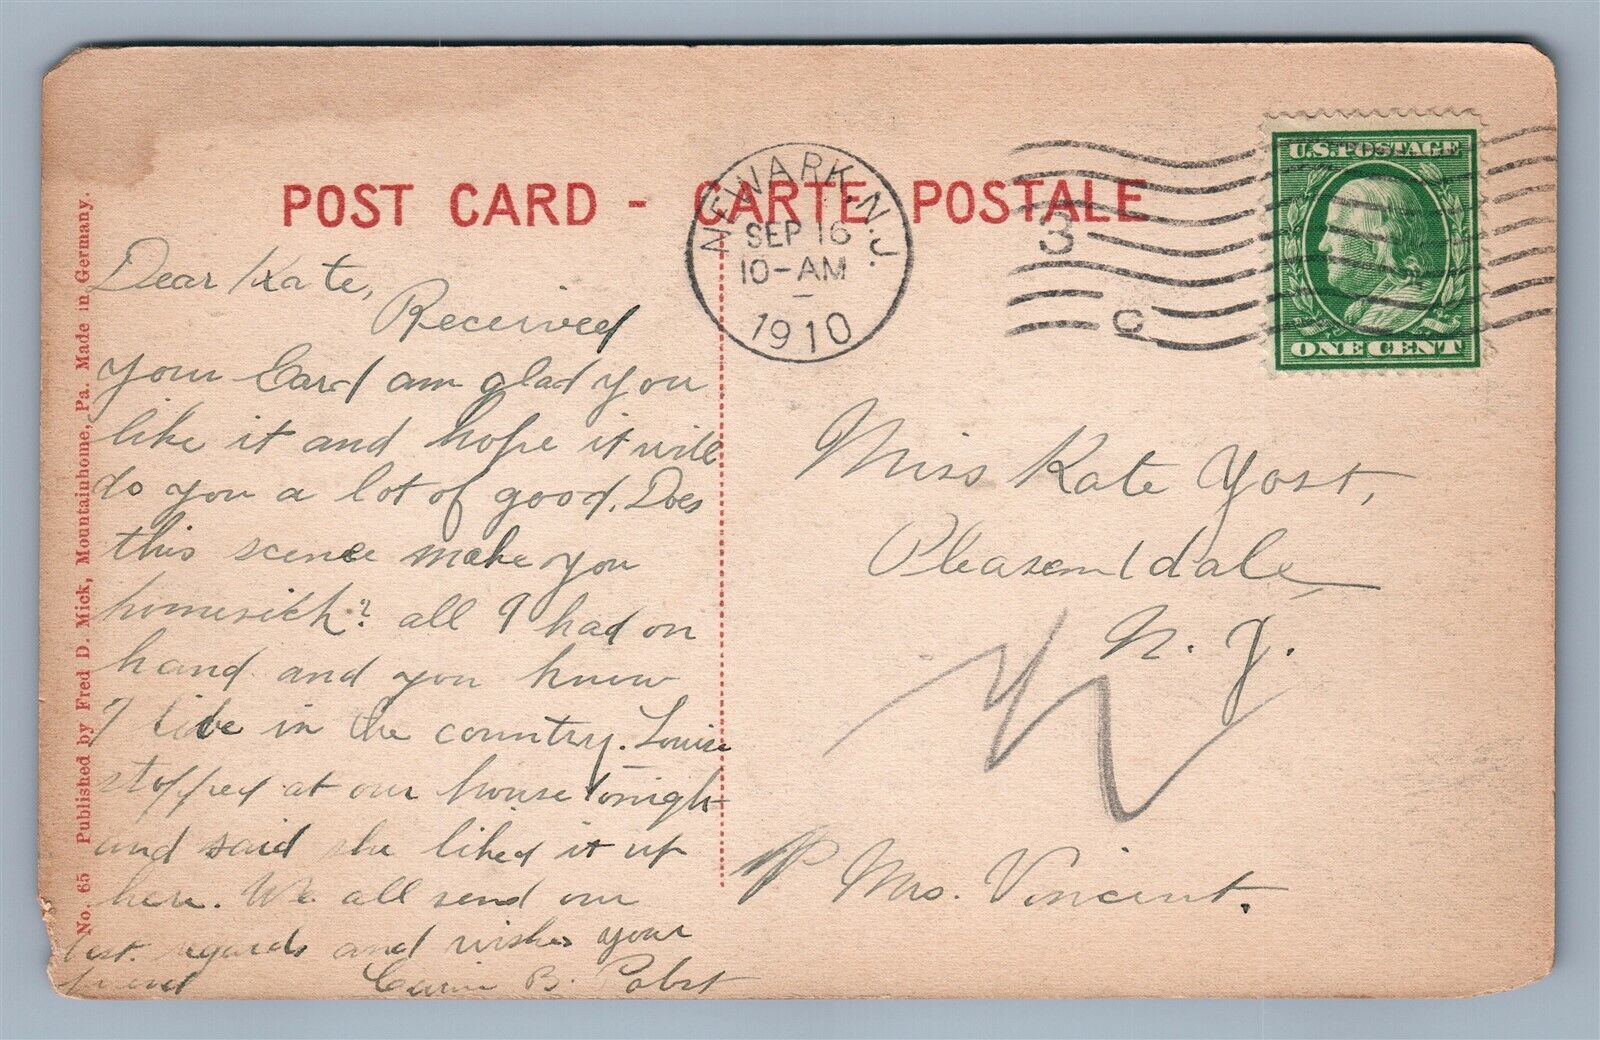 POST CARD - CARTE POSTALE
NEWARK, N.J.
SEP 16
10-AM
1910
3
C
U.S. POSTAGE
ONE CENT
No. 65 Published by Fred D. Mick, Mountainhome, Pa. Made in Germany.
Dear Kate,
Received
your Card am glad you
like it and hope it will
do you a lot of good. Does
this scene make you
homesick? all I had on
hand and you know
I live in the country. Louise
stopped at our house tonight
and said she liked it up
here. We all send our
best regards and wishes your
friend B. Pabst
Miss Kate Yost,
Pleasantdale,
N. J.
Mrs. Vincent.